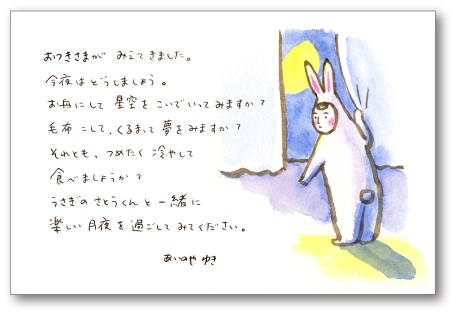 おつきさまが みえてきました。
今夜はどうしましょう。
お舟にして 星空を こいでいってみますか？
毛布にして、くるまって 夢をみますか？
それとも、つめたく 冷やして
食べましょうか？
うさぎの さとうくんと 一緒に
楽しい月夜を 過ごしてみてください。
あいのや ゆき